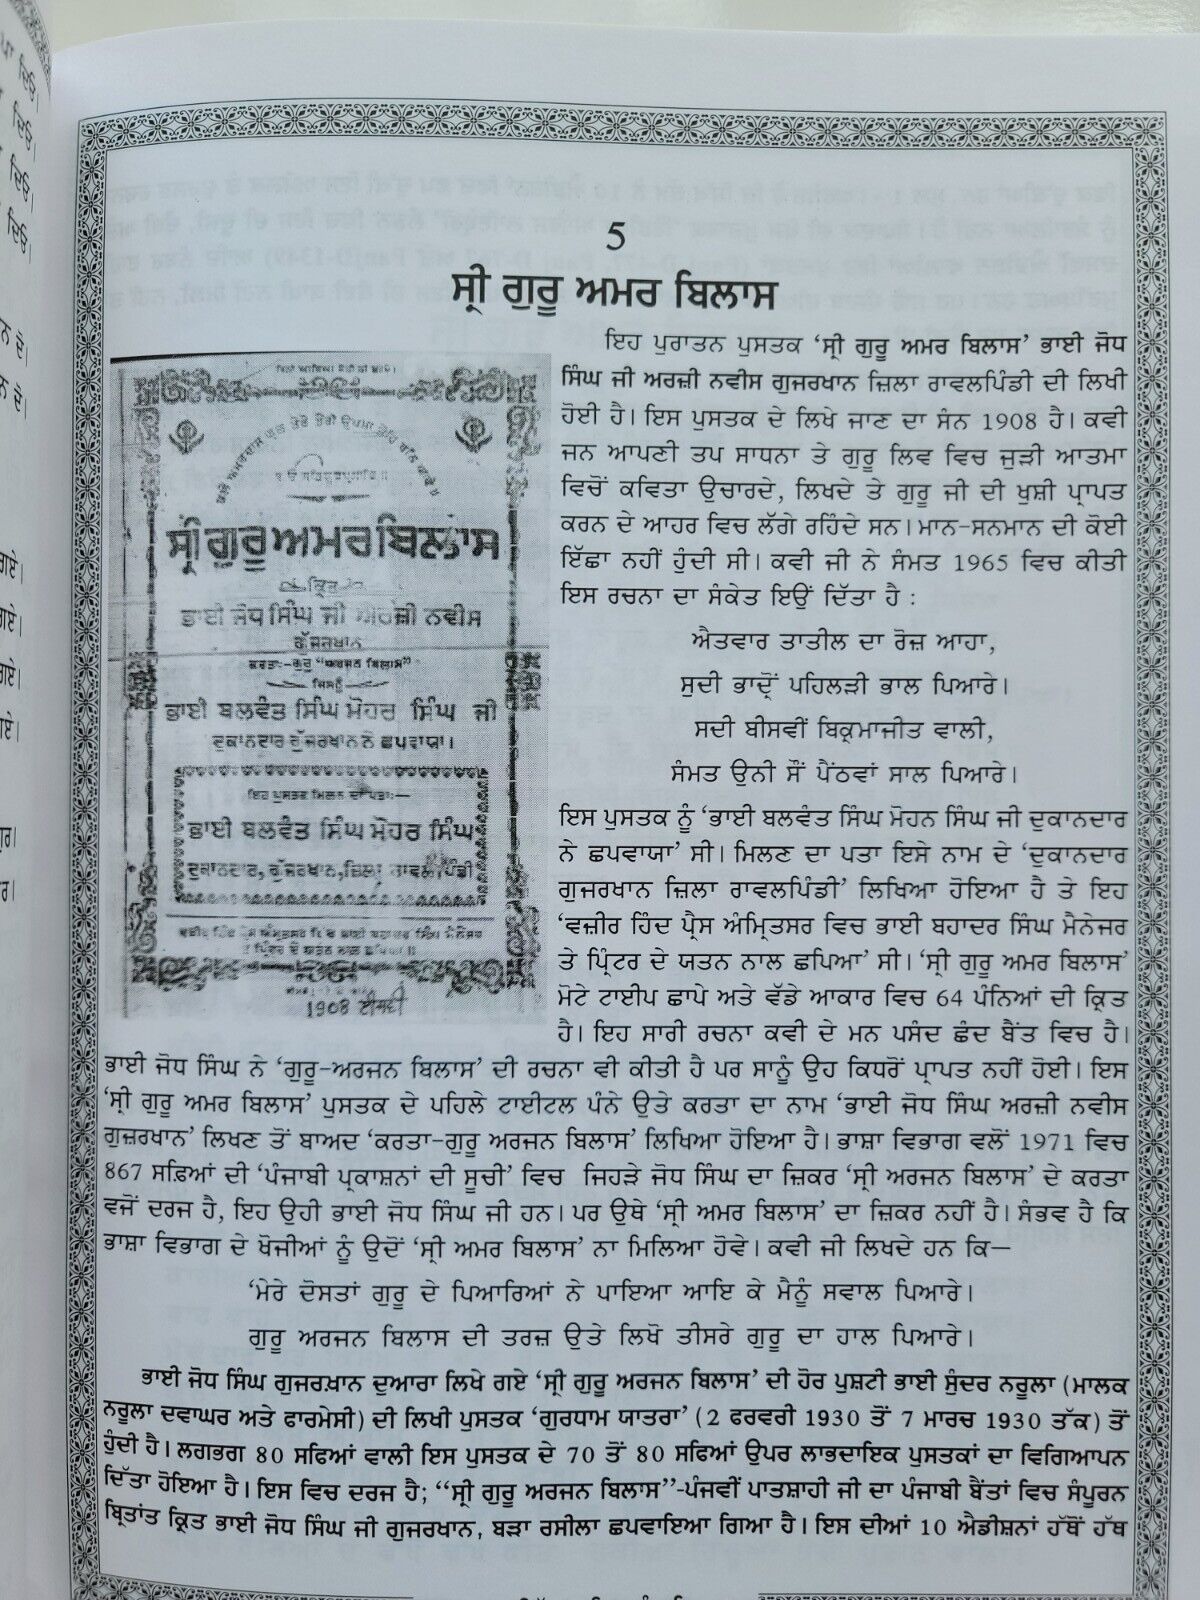 5
ਸ੍ਰੀ ਗੁਰੂ ਅਮਰ ਬਿਲਾਸ
ਸ੍ਰੀ ਗੁਰੂ ਅਮਰ ਬਿਲਾਸ
ਕ੍ਰਿਤ
ਭਾਈ ਜੋਧ ਸਿੰਘ ਜੀ ਅਰਜ਼ੀ ਨਵੀਸ
ਗੁੱਜਰਖਾਨ
ਕਰਤਾ:-ਗੁਰੂ "ਅਰਜਨ ਬਿਲਾਸ"
ਜਿਸਨੂੰ
ਭਾਈ ਬਲਵੰਤ ਸਿੰਘ ਮੋਹਰ ਸਿੰਘ ਜੀ
ਦੁਕਾਨਦਾਰ ਗੁੱਜਰਖਾਨ ਨੇ ਛਪਵਾਯਾ।
ਇਹ ਪੁਸਤਕ ਮਿਲਨ ਦਾ ਪਤਾ:—
ਭਾਈ ਬਲਵੰਤ ਸਿੰਘ ਮੋਹਰ ਸਿੰਘ
ਦੁਕਾਨਦਾਰ, ਗੁੱਜਰਖਾਨ, ਜ਼ਿਲਾ ਰਾਵਲਪਿੰਡੀ
1908 ਈਸਵੀ
ਇਹ ਪੁਰਾਤਨ ਪੁਸਤਕ ‘ਸ੍ਰੀ ਗੁਰੂ ਅਮਰ ਬਿਲਾਸ’ ਭਾਈ ਜੋਧ
ਸਿੰਘ ਜੀ ਅਰਜ਼ੀ ਨਵੀਸ ਗੁਜਰਖਾਨ ਜ਼ਿਲਾ ਰਾਵਲਪਿੰਡੀ ਦੀ ਲਿਖੀ
ਹੋਈ ਹੈ। ਇਸ ਪੁਸਤਕ ਦੇ ਲਿਖੇ ਜਾਣ ਦਾ ਸੰਨ 1908 ਹੈ। ਕਵੀ
ਜਨ ਆਪਣੀ ਤਪ ਸਾਧਨਾ ਤੇ ਗੁਰੂ ਲਿਵ ਵਿਚ ਜੁੜੀ ਆਤਮਾ
ਵਿਚੋਂ ਕਵਿਤਾ ਉਚਾਰਦੇ, ਲਿਖਦੇ ਤੇ ਗੁਰੂ ਜੀ ਦੀ ਖੁਸ਼ੀ ਪ੍ਰਾਪਤ
ਕਰਨ ਦੇ ਆਹਰ ਵਿਚ ਲੱਗੇ ਰਹਿੰਦੇ ਸਨ। ਮਾਨ-ਸਨਮਾਨ ਦੀ ਕੋਈ
ਇੱਛਾ ਨਹੀਂ ਹੁੰਦੀ ਸੀ। ਕਵੀ ਜੀ ਨੇ ਸੰਮਤ 1965 ਵਿਚ ਕੀਤੀ
ਇਸ ਰਚਨਾ ਦਾ ਸੰਕੇਤ ਇਉਂ ਦਿੱਤਾ ਹੈ :
ਐਤਵਾਰ ਤਾਤੀਲ ਦਾ ਰੋਜ਼ ਆਹਾ,
ਸੁਦੀ ਭਾਦ੍ਰੋਂ ਪਹਿਲੜੀ ਭਾਲ ਪਿਆਰੇ।
ਸਦੀ ਬੀਸਵੀਂ ਬਿਕ੍ਰਮਾਜੀਤ ਵਾਲੀ,
ਸੰਮਤ ਉਨੀ ਸੌਂ ਪੈਂਠਵਾਂ ਸਾਲ ਪਿਆਰੇ।
ਇਸ ਪੁਸਤਕ ਨੂੰ ‘ਭਾਈ ਬਲਵੰਤ ਸਿੰਘ ਮੋਹਨ ਸਿੰਘ ਜੀ ਦੁਕਾਨਦਾਰ
ਨੇ ਛਪਵਾਯਾ’ ਸੀ। ਮਿਲਣ ਦਾ ਪਤਾ ਇਸੇ ਨਾਮ ਦੇ ‘ਦੁਕਾਨਦਾਰ
ਗੁਜਰਖਾਨ ਜ਼ਿਲਾ ਰਾਵਲਪਿੰਡੀ’ ਲਿਖਿਆ ਹੋਇਆ ਹੈ ਤੇ ਇਹ
‘ਵਜ਼ੀਰ ਹਿੰਦ ਪ੍ਰੈਸ ਅੰਮ੍ਰਿਤਸਰ ਵਿਚ ਭਾਈ ਬਹਾਦਰ ਸਿੰਘ ਮੈਨੇਜਰ
ਤੇ ਪ੍ਰਿੰਟਰ ਦੇ ਯਤਨ ਨਾਲ ਛਪਿਆ’ ਸੀ। ‘ਸ੍ਰੀ ਗੁਰੂ ਅਮਰ ਬਿਲਾਸ’
ਮੋਟੇ ਟਾਈਪ ਛਾਪੇ ਅਤੇ ਵੱਡੇ ਆਕਾਰ ਵਿਚ 64 ਪੰਨਿਆਂ ਦੀ ਕ੍ਰਿਤ
ਹੈ। ਇਹ ਸਾਰੀ ਰਚਨਾ ਕਵੀ ਦੇ ਮਨ ਪਸੰਦ ਛੰਦ ਬੈਂਤ ਵਿਚ ਹੈ।
ਭਾਈ ਜੋਧ ਸਿੰਘ ਨੇ ‘ਗੁਰੂ-ਅਰਜਨ ਬਿਲਾਸ’ ਦੀ ਰਚਨਾ ਵੀ ਕੀਤੀ ਹੈ ਪਰ ਸਾਨੂੰ ਉਹ ਕਿਧਰੋਂ ਪ੍ਰਾਪਤ ਨਹੀਂ ਹੋਈ। ਇਸ
‘ਸ੍ਰੀ ਗੁਰੂ ਅਮਰ ਬਿਲਾਸ’ ਪੁਸਤਕ ਦੇ ਪਹਿਲੇ ਟਾਈਟਲ ਪੰਨੇ ਉਤੇ ਕਰਤਾ ਦਾ ਨਾਮ ‘ਭਾਈ ਜੋਧ ਸਿੰਘ ਅਰਜ਼ੀ ਨਵੀਸ
ਗੁਜ਼ਰਖਾਨ’ ਲਿਖਣ ਤੋਂ ਬਾਅਦ ‘ਕਰਤਾ-ਗੁਰੂ ਅਰਜਨ ਬਿਲਾਸ’ ਲਿਖਿਆ ਹੋਇਆ ਹੈ। ਭਾਸ਼ਾ ਵਿਭਾਗ ਵਲੋਂ 1971 ਵਿਚ
867 ਸਫ਼ਿਆਂ ਦੀ ‘ਪੰਜਾਬੀ ਪ੍ਰਕਾਸ਼ਨਾਂ ਦੀ ਸੂਚੀ’ ਵਿਚ ਜਿਹੜੇ ਜੋਧ ਸਿੰਘ ਦਾ ਜ਼ਿਕਰ ‘ਸ੍ਰੀ ਅਰਜਨ ਬਿਲਾਸ’ ਦੇ ਕਰਤਾ
ਵਜੋਂ ਦਰਜ ਹੈ, ਇਹ ਉਹੀ ਭਾਈ ਜੋਧ ਸਿੰਘ ਜੀ ਹਨ। ਪਰ ਉਥੇ ‘ਸ੍ਰੀ ਅਮਰ ਬਿਲਾਸ’ ਦਾ ਜ਼ਿਕਰ ਨਹੀਂ ਹੈ। ਸੰਭਵ ਹੈ ਕਿ
ਭਾਸ਼ਾ ਵਿਭਾਗ ਦੇ ਖੋਜੀਆਂ ਨੂੰ ਉਦੋਂ ‘ਸ੍ਰੀ ਅਮਰ ਬਿਲਾਸ’ ਨਾ ਮਿਲਿਆ ਹੋਵੇ। ਕਵੀ ਜੀ ਲਿਖਦੇ ਹਨ ਕਿ—
‘ਮੇਰੇ ਦੋਸਤਾਂ ਗੁਰੂ ਦੇ ਪਿਆਰਿਆਂ ਨੇ ਪਾਇਆ ਆਇ ਕੇ ਮੈਨੂੰ ਸਵਾਲ ਪਿਆਰੇ।
ਗੁਰੂ ਅਰਜਨ ਬਿਲਾਸ ਦੀ ਤਰਜ਼ ਉਤੇ ਲਿਖੋ ਤੀਸਰੇ ਗੁਰੂ ਦਾ ਹਾਲ ਪਿਆਰੇ।
ਭਾਈ ਜੋਧ ਸਿੰਘ ਗੁਜਰਖ਼ਾਨ ਦੁਆਰਾ ਲਿਖੇ ਗਏ ‘ਸ੍ਰੀ ਗੁਰੂ ਅਰਜਨ ਬਿਲਾਸ’ ਦੀ ਹੋਰ ਪੁਸ਼ਟੀ ਭਾਈ ਸੁੰਦਰ ਨਰੂਲਾ (ਮਾਲਕ
ਨਰੂਲਾ ਦਵਾਘਰ ਅਤੇ ਫਾਰਮੇਸੀ) ਦੀ ਲਿਖੀ ਪੁਸਤਕ ‘ਗੁਰਧਾਮ ਯਾਤਰਾ’ (2 ਫਰਵਰੀ 1930 ਤੋਂ 7 ਮਾਰਚ 1930 ਤੱਕ) ਤੋਂ
ਹੁੰਦੀ ਹੈ। ਲਗਭਗ 80 ਸਫਿਆਂ ਵਾਲੀ ਇਸ ਪੁਸਤਕ ਦੇ 70 ਤੋਂ 80 ਸਫਿਆਂ ਉਪਰ ਲਾਭਦਾਇਕ ਪੁਸਤਕਾਂ ਦਾ ਵਿਗਿਆਪਨ
ਦਿੱਤਾ ਹੋਇਆ ਹੈ। ਇਸ ਵਿਚ ਦਰਜ ਹੈ; “ਸ੍ਰੀ ਗੁਰੂ ਅਰਜਨ ਬਿਲਾਸ”-ਪੰਜਵੀਂ ਪਾਤਸ਼ਾਹੀ ਜੀ ਦਾ ਪੰਜਾਬੀ ਬੈਂਤਾਂ ਵਿਚ ਸੰਪੂਰਨ
ਬ੍ਰਿਤਾਂਤ ਕ੍ਰਿਤ ਭਾਈ ਜੋਧ ਸਿੰਘ ਜੀ ਗੁਜਰਖਾਨ, ਬੜਾ ਰਸੀਲਾ ਛਪਵਾਇਆ ਗਿਆ ਹੈ। ਇਸ ਦੀਆਂ 10 ਐਡੀਸ਼ਨਾਂ ਹੱਥੋਂ ਹੱਥ